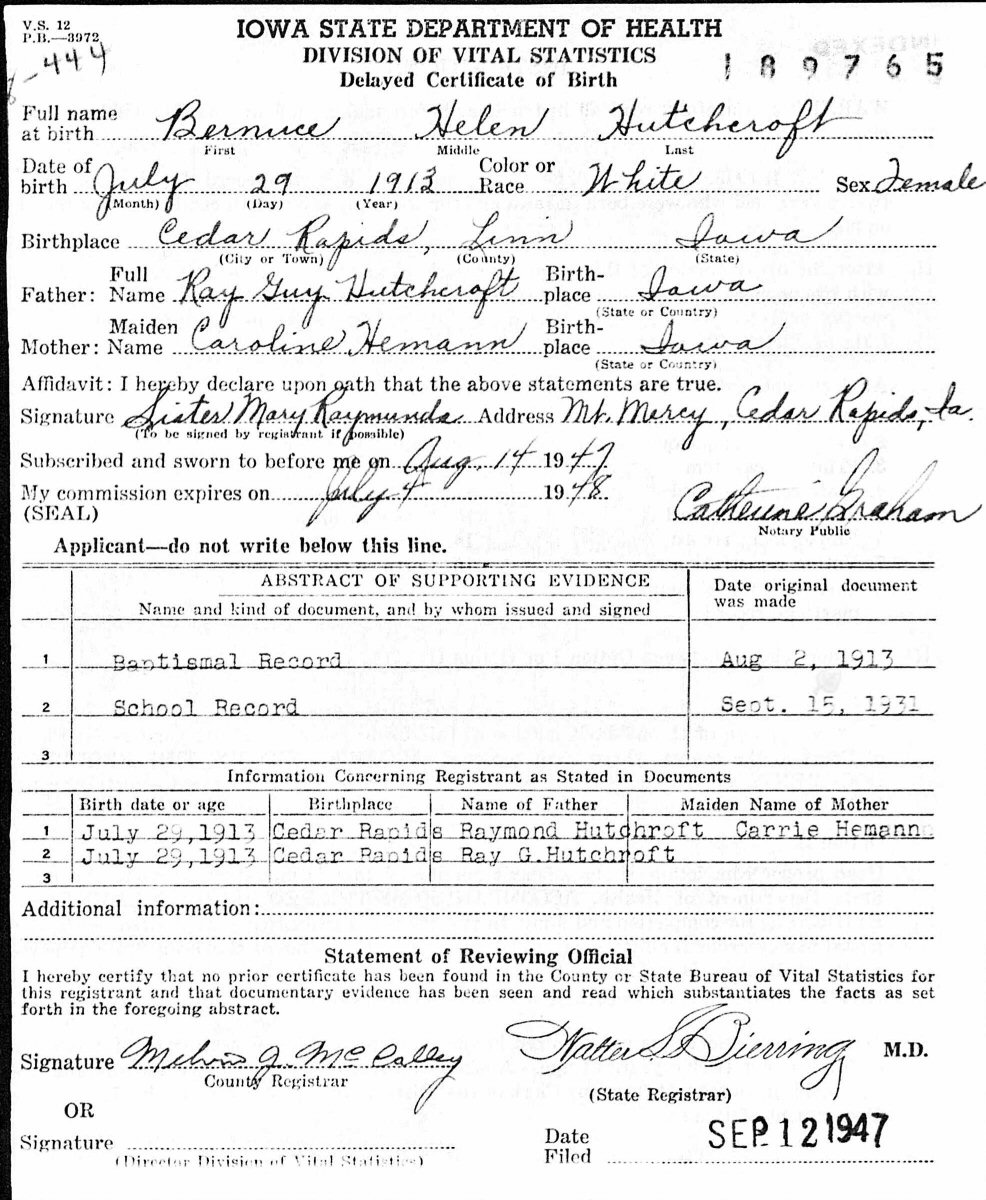 V.S. 12
P.B.—3972
IOWA STATE DEPARTMENT OF HEALTH
-444
DIVISION OF VITAL STATISTICS
189765
Delayed Certificate of Birth
Full name at birth Bernice Helen Hutchcroft
First Middle Last
Date of birth July 29 1913 Color or Race White Sex Female
(Month) (Day) (Year)
Birthplace Cedar Rapids, Linn Iowa
(City or Town) (County) (State)
Father: Full Name Ray Guy Hutchcroft Birth-place Iowa
(State or Country)
Mother: Maiden Name Caroline Hemann Birth-place Iowa
(State or Country)
Affidavit: I hereby declare upon oath that the above statements are true.
Signature Sister Mary Raymunda Address Mt. Mercy, Cedar Rapids, Ia.
(To be signed by registrant if possible)
Subscribed and sworn to before me on Aug. 14 1947
My commission expires on July 4 1948
(SEAL) Catherine Graham
Notary Public
Applicant—do not write below this line.
ABSTRACT OF SUPPORTING EVIDENCE
Name and kind of document, and by whom issued and signed
Date original document was made
1 Baptismal Record Aug 2, 1913
2 School Record Sept. 15, 1931
3
Information Concerning Registrant as Stated in Documents
Birth date or age Birthplace Name of Father Maiden Name of Mother
1 July 29,1913 Cedar Rapids Raymond Hutchroft Carrie Hemann
2 July 29,1913 Cedar Rapids Ray G.Hutchroft
3
Additional information:
Statement of Reviewing Official
I hereby certify that no prior certificate has been found in the County or State Bureau of Vital Statistics for
this registrant and that documentary evidence has been seen and read which substantiates the facts as set
forth in the foregoing abstract.
Signature Melvin J. McCalley Walter L Bierring M.D.
County Registrar
(State Registrar)
OR
Signature
(Director Division of Vital Statistics)
Date Filed SEP 12 1947